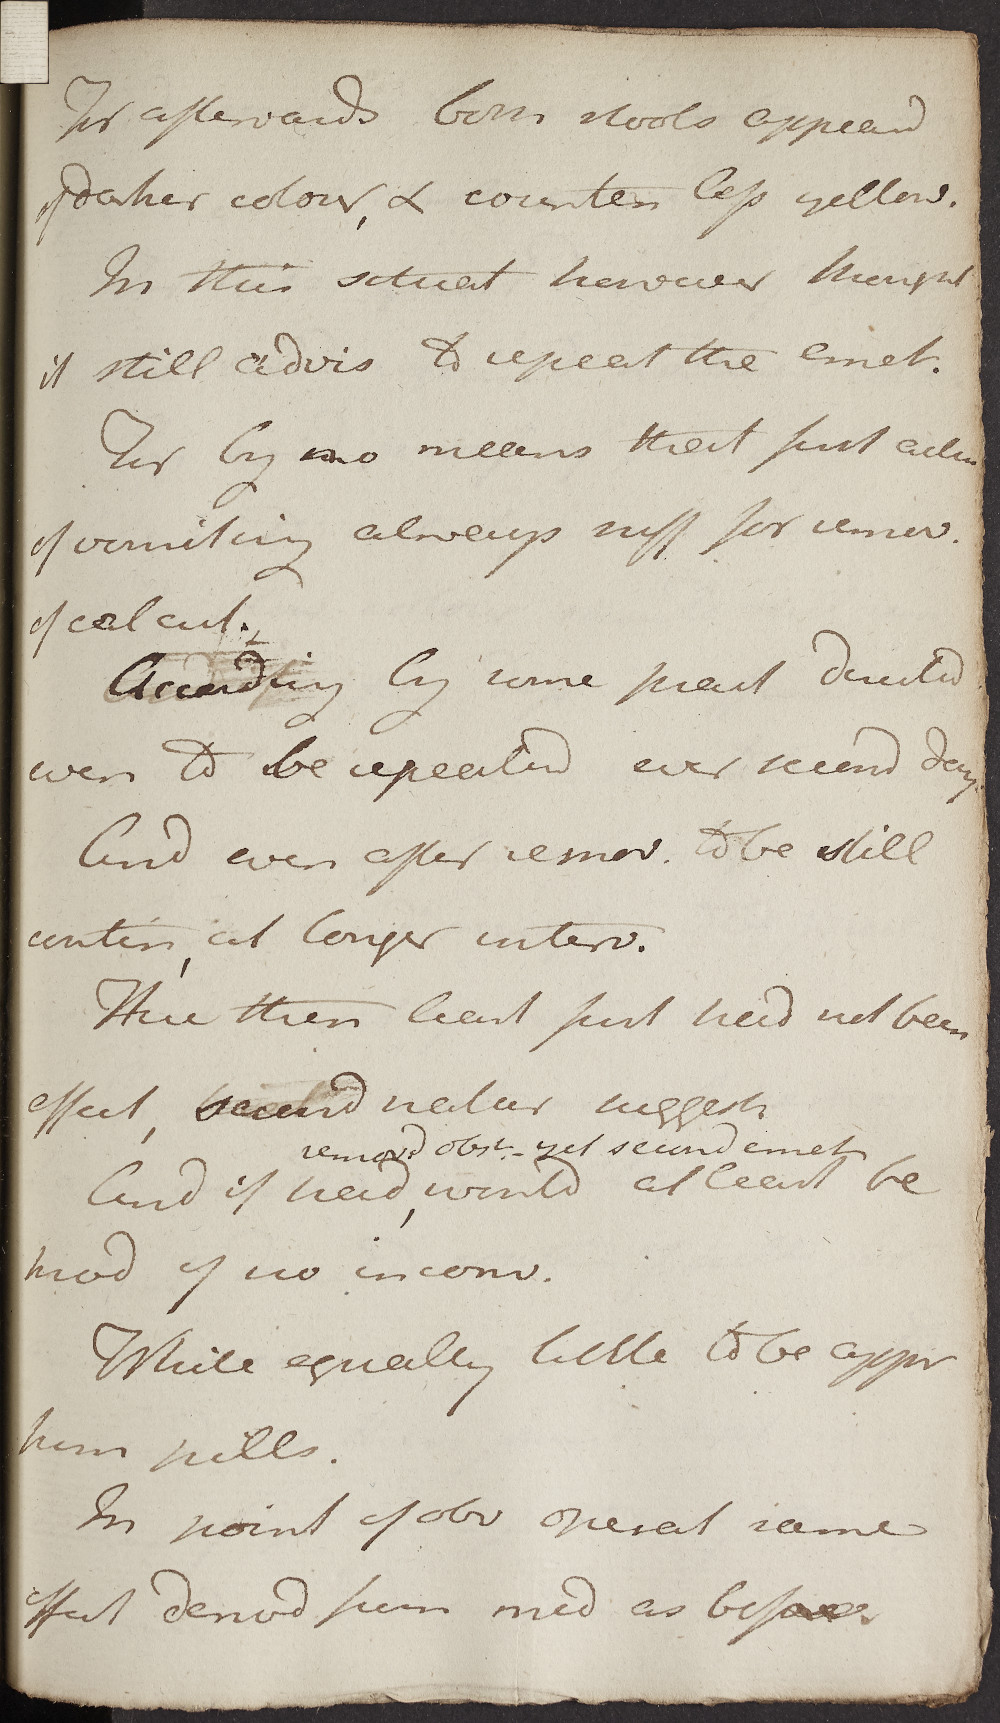 For afterwards both stools appeard
of darker colour, & counten less yellow.
In this situat however thought
it still advis to repeat the emet.
For by no means that first action
of vomiting always suff for remov.
of calcul.
According by some pract directed
even to be repeated ever second day.
And even after remov. to be still
contin, at longer interv.
Here then least first had not been
effect, second natur suggest
remov.d obst. - yet second emet
And if had, would at least be
prod of no inconv.
While equally little to be appr
from pills.
In point of obv operat same
effect derivd from med as before